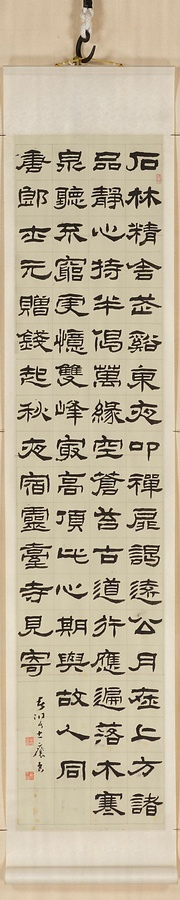 石林精舍武谿東夜叩禪扉謁遠公月在上方諸
品靜心持半偈萬緣空蒼苔古道行應遍落木寒
泉聽不窮更憶雙峰最高頂此心期與故人同
唐郎士元贈錢起秋夜宿靈臺寺見寄